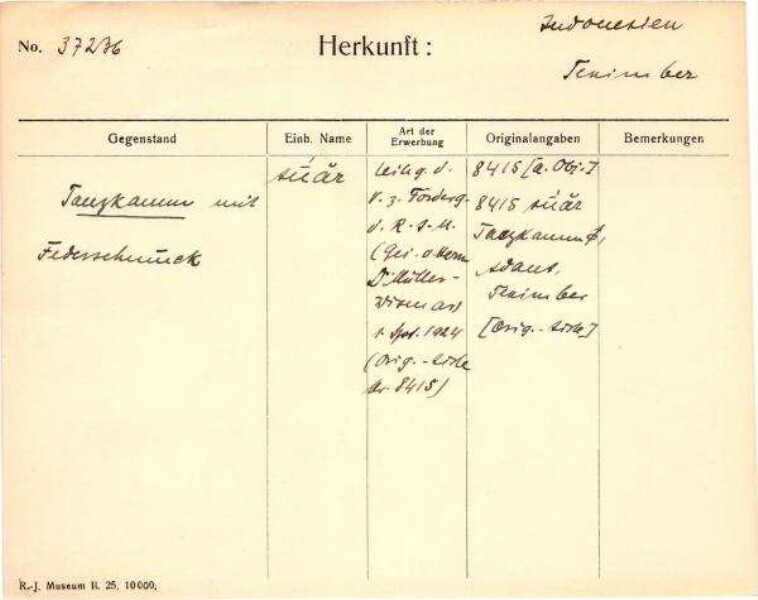 No. 37236
Herkunft:
Indonesien
Tenimber
Gegenstand
Einh. Name
Art der
Erwerbung
Originalangaben
Bemerkungen
Tanzkamm mit
Federschmuck
súăr
Leihg. d.
V. z. Förderg.
d. R-J-M.
Dr Müller-
Wismar)
1. Spt. 1924
(Orig.-Liste
Nr. 8415)
8415 [a. Obj.]
8415 súăr
Tanzkamm ♂,
Adaut,
Tenimber
[Orig.-Liste]
R.-J. Museum II. 25. 10000.